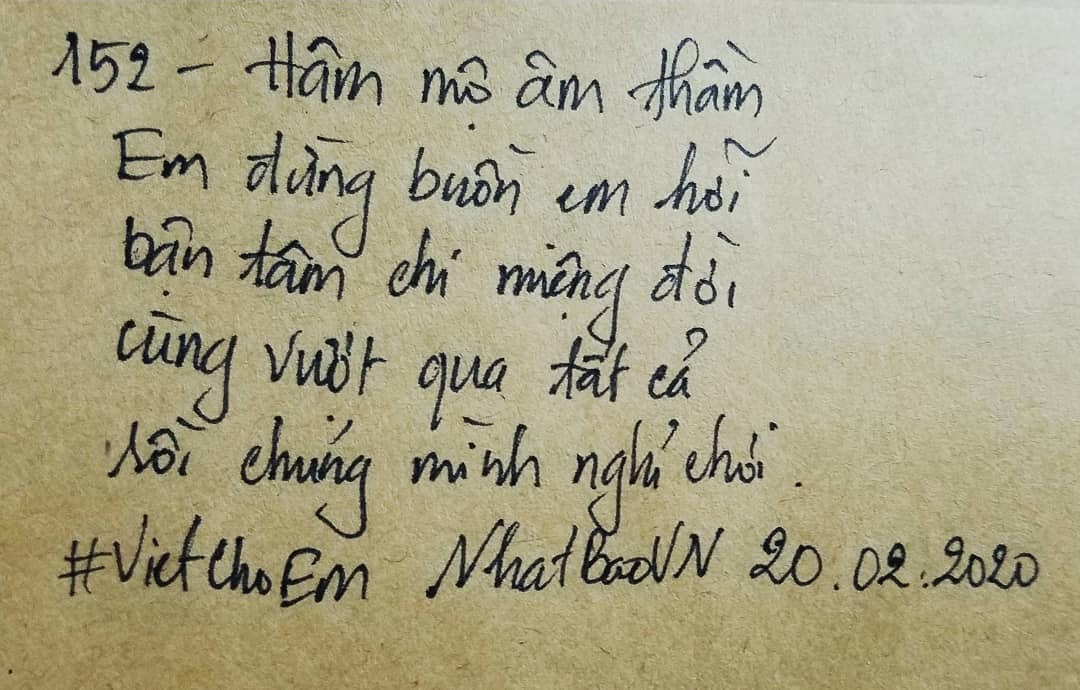 152 - Hâm mộ âm thầm
Em đừng buồn em hỡi
bận tâm chi miệng đời
cùng vượt qua tất cả
rồi chúng mình nghỉ chơi.
#VietchoEm NhatBaoVN 20.02.2020